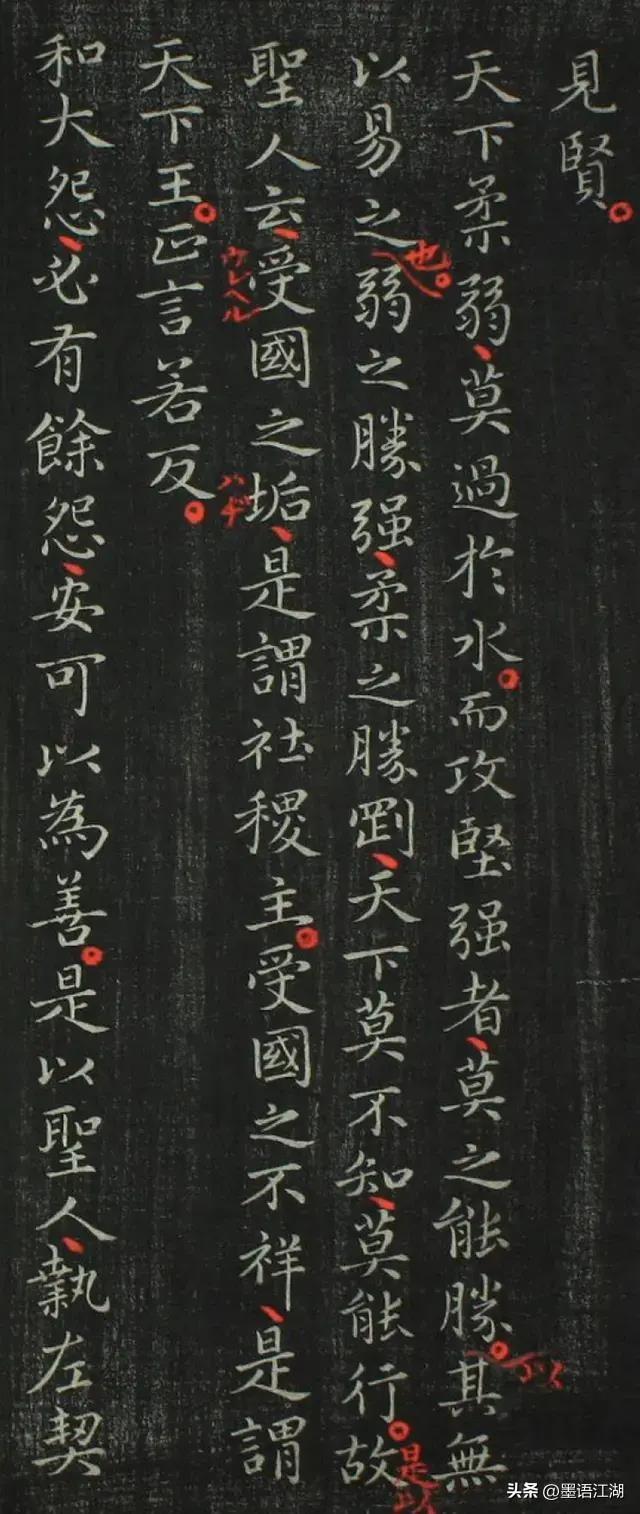 見賢。
天下柔弱、莫過於水。而攻堅强者、莫之能勝。其無
以易之弱之勝强、柔之勝剛、天下莫不知、莫能行。故
也。
是以
聖人云、受國之垢、是謂社稷主。受國之不祥、是謂
ウレヘル
ハヂ
天下王。正言若反。
和大怨、必有餘怨、安可以為善。是以聖人、執左契
头条 @墨语江湖